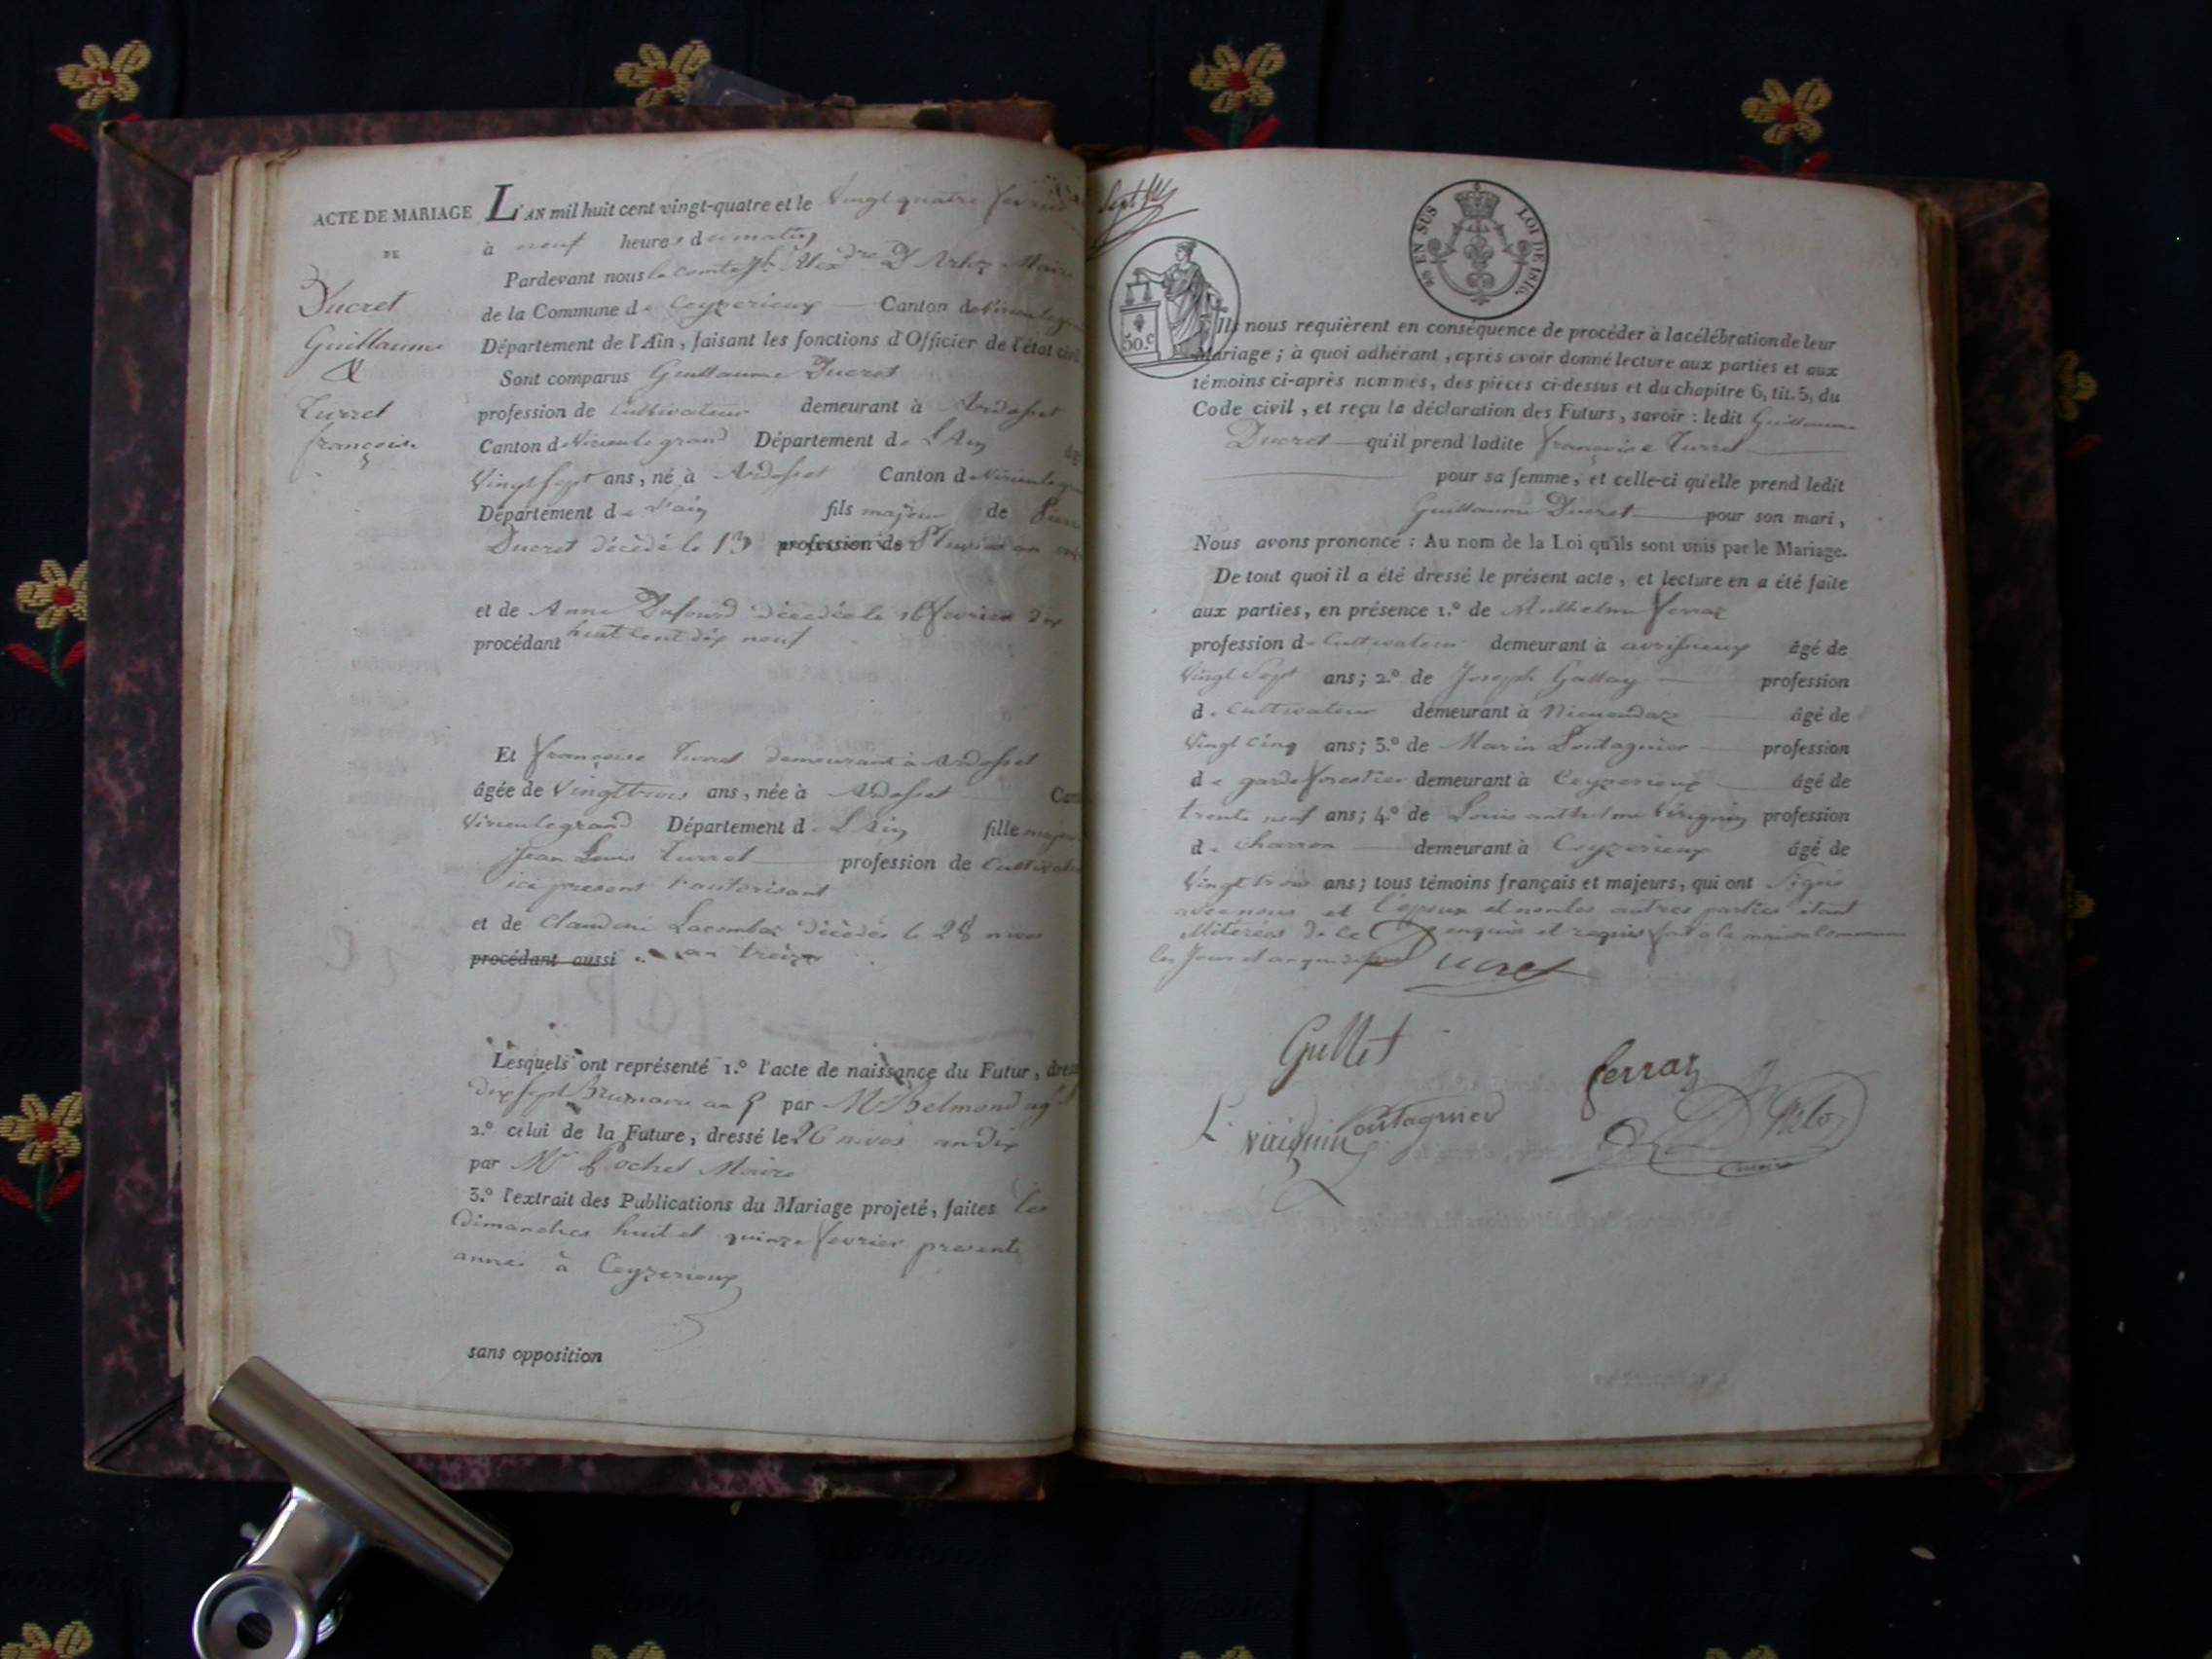 ACTE DE MARIAGE
DE
Ducret
Guillaume
&
Turrel
françoise
L'AN mil huit cent vingt-quatre et le Vingt quatre fevrier
à neuf heures du matin
Pardevant nous le comte D'Arloz Maire
de la Commune de Ceyzerieux Canton de Virieu le gr
Département de l'Ain, faisant les fonctions d'Officier de l'état civil
Sont comparus Guillaume Ducret
profession de Cultivateur demeurant à Ardosset
Canton de Virieu le grand Département de L'Ain
Vingt sept ans, né à Ardosset Canton de Virieu le g
Département de L'ain fils majeur de Pierre
Ducret décédé le 13 profession de Pluviose an
et de Anne Dufourd décédée le 16 fevrier dix
procédant huit cent dix neuf
Et françoise Turrel demeurant à Ardosset
âgée de Vingt trois ans, née à Ardosset Can
Virieu le grand Département de L'Ain fille majeure
Jean Louis Turrel profession de Cultivateur
ici present l'autorisant
et de Claudine Lacombe décédée le 28 nivos
procédant aussi an treize
Lesquels ont représenté 1.º l'acte de naissance du Futur, dressé
dix sept Brumaire an 5 par Mr Belmond agt
2.º celui de la Future, dressé le 26 nivos an dix
par Mr Cochet Maire
3.º l'extrait des Publications du Mariage projeté, faites les
dimanches huit et quinze fevrier presente
année à Ceyzerieux
sans opposition
Sept
25 EN SUS LOI DE 1816.
50.c
Ils nous requièrent en conséquence de procéder à la célébration de leur
Mariage; à quoi adhérant, après avoir donné lecture aux parties et aux
témoins ci-après nommés, des pièces ci-dessus et du chapitre 6, tit. 5, du
Code civil, et reçu la déclaration des Futurs, savoir: ledit Guillaume
Ducret qu'il prend ladite françoise Turrel
pour sa femme, et celle-ci qu'elle prend ledit
Guillaume Ducret pour son mari,
Nous avons prononcé: Au nom de la Loi qu'ils sont unis par le Mariage.
De tout quoi il a été dressé le présent acte, et lecture en a été faite
aux parties, en présence 1.º de Anthelme ferraz
profession de Cultivateur demeurant à avrissieux âgé de
Vingt Sept ans; 2.º de Joseph Gallay profession
de Cultivateur demeurant à âgé de
Vingt cinq ans; 3.º de Marin Poutagnier profession
de garde forestier demeurant à Ceyzerieux âgé de
trente neuf ans; 4.º de Louis anthelme Virignin profession
de charron demeurant à Ceyzerieux âgé de
Vingt trois ans; tous témoins français et majeurs, qui ont Signé
avec nous et l'epoux et non les autres parties etant
illitérées de ce enquis et requis fait a la maison Commune
les Jour et an que dessus Ducret
Gullet
ferraz
L. Virignin
Poutagnier
D'Arloz
maire